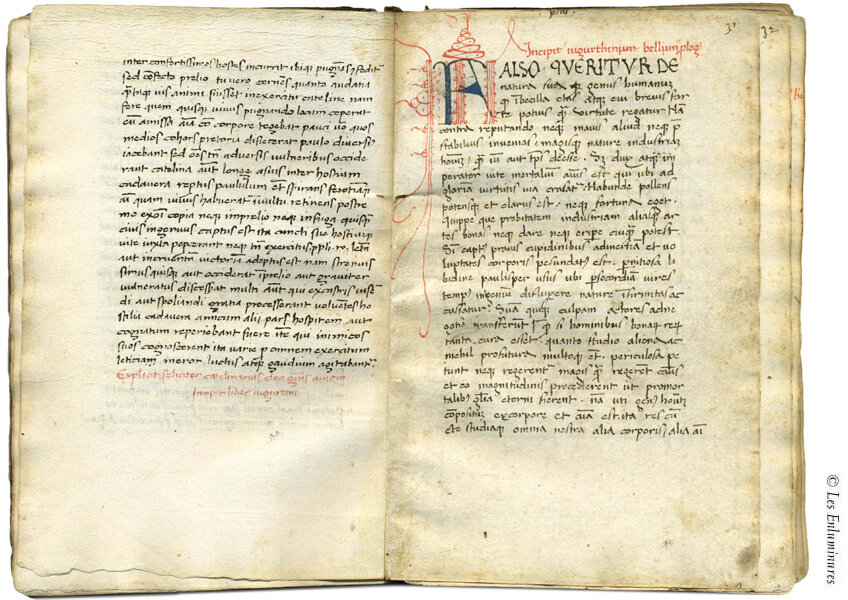 inter confertissimos hostes incurrit ibiq; pugnās cōfoditr
sed confecto prelio tu vero cerneres quanta audatia
q̄ntaq; vis animi fuisset in exercitu cateline nam
fere quem quisque vivus pugnando locum ceperat
eū amissa aīa cō corpore tegebat pauci vō quos
medios cohors pretoria disiecerat paulo diversi
iacebant sed oēs tn̄ adversis vulneribus occide
rant catelina aut longe a suis inter hostium
cadavera reptus paululum et spirans ferotiāq;
aī quam vivus habuerat in vultu retinens postre
mo ex oī copia neq; in prelio neq; in fuga quisq̄
civis ingenuus captus est ita cuncti sue hostiūq;
vite iuxta pepercerant neq; tn̄ exercitus ppli. ro. letā
aut incruentā victoriā adeptus est nam strenuis
simus quisq; aut occiderat ī prelio aut graviter
vulneratus discesserat multi aut qui ex castris visē
di aut spoliandi gratia processerant volventes ho
stilia cadavera amicum alii pars hospitem aut
cognatum reperiebant fuere itē qui inimicos
suos cognoscerent ita varie p omnem exercitum
leticia meror luctus atq; gaudium agitabantr
Explicit feliciter catelinarius deo grās amen
Incipit liber iugurtini
xiiii
31
32
Incipit iugurthinum bellum plog
FALSO · QVERITVR DE
natura sua genus humanum
q imbecilla etas atq; evi brevis for
te potius q̄ virtute regatur Nā
contra reputando neq; maius aliud neq; p
stabilius invenias magisq; nature industriam
hominū q̄ vim aut tp̄s deesse. Sz dux atq; im
perator vite mortalium animus est qui ubi ad
gloriam virtutis via crassatr habunde pollens
potensq; et clarus est. neq; fortuna eget.
Quippe que probitatem industriam aliasq; ar
tes bonas neq; dare neq; eripe cuiq̄ potest.
Sī captus pravis cupidinibus ad inertiam et vo
luptates corporis pesundatus est. pnitiosa li
bidine paulisper usus ubi p socordiam vires
tempus ingenium difluxere nature īfirmitas ac
cusatur. Sua quisq; culpam actores ad ne
gotia transferūt q si hominibus bonarum rerū
tanta cura esset. quanto studio aliena ac
nichil profutura multoq; et. periculosa pe
tunt neq; regerentur magis q̄ regerent casus
et eo magnitudinis procederent ut p mor
talibus glīa eterni fierent. nā uti genus hoīm
cōpositum ex corpore et aīa est ita res cū
cte studiaq; omnia nostra alia corporis alia aī
© Les Enluminures